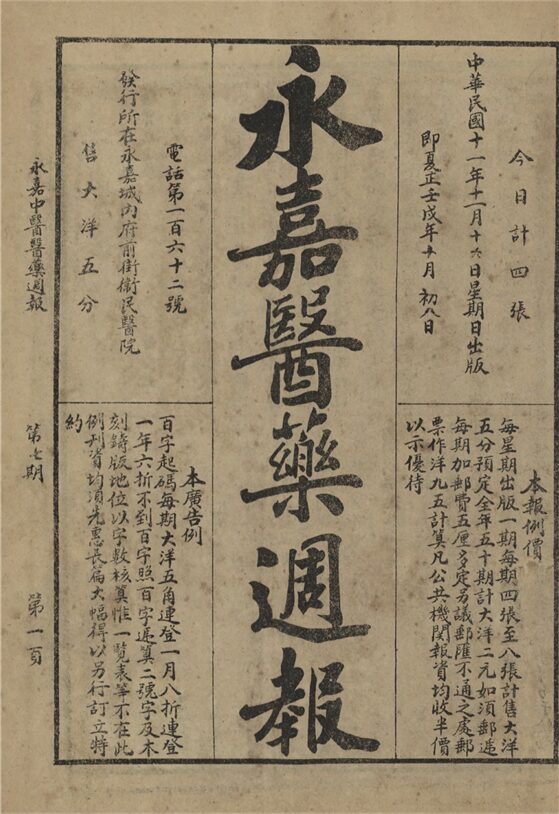 今日計四張
中華民國十一年十一月廿六日星期日出版
即夏正壬戌年十月初八日
本報例價
每星期出版一期每期四張至八張計售大洋
五分預定全年五十期計大洋二元如須郵遞
每期加郵費五厘多定另議郵匯不通之處郵
票作洋九五計算凡公共機関報資均收半價
以示優待
永嘉醫藥週報
電話第一百六十二號
發行所在永嘉城内府前街衛民醫院
售大洋五分
本廣告例
百字起碼每期大洋五角連登一月八折連登
一年六折不到百字照百字遞算二號字及木
刻鑄版地位以字數核算惟一覽表等不在此
例刊資均須先惠長篇大幅得以另行訂立特
約
永嘉中醫醫藥週報
第七期
第一頁